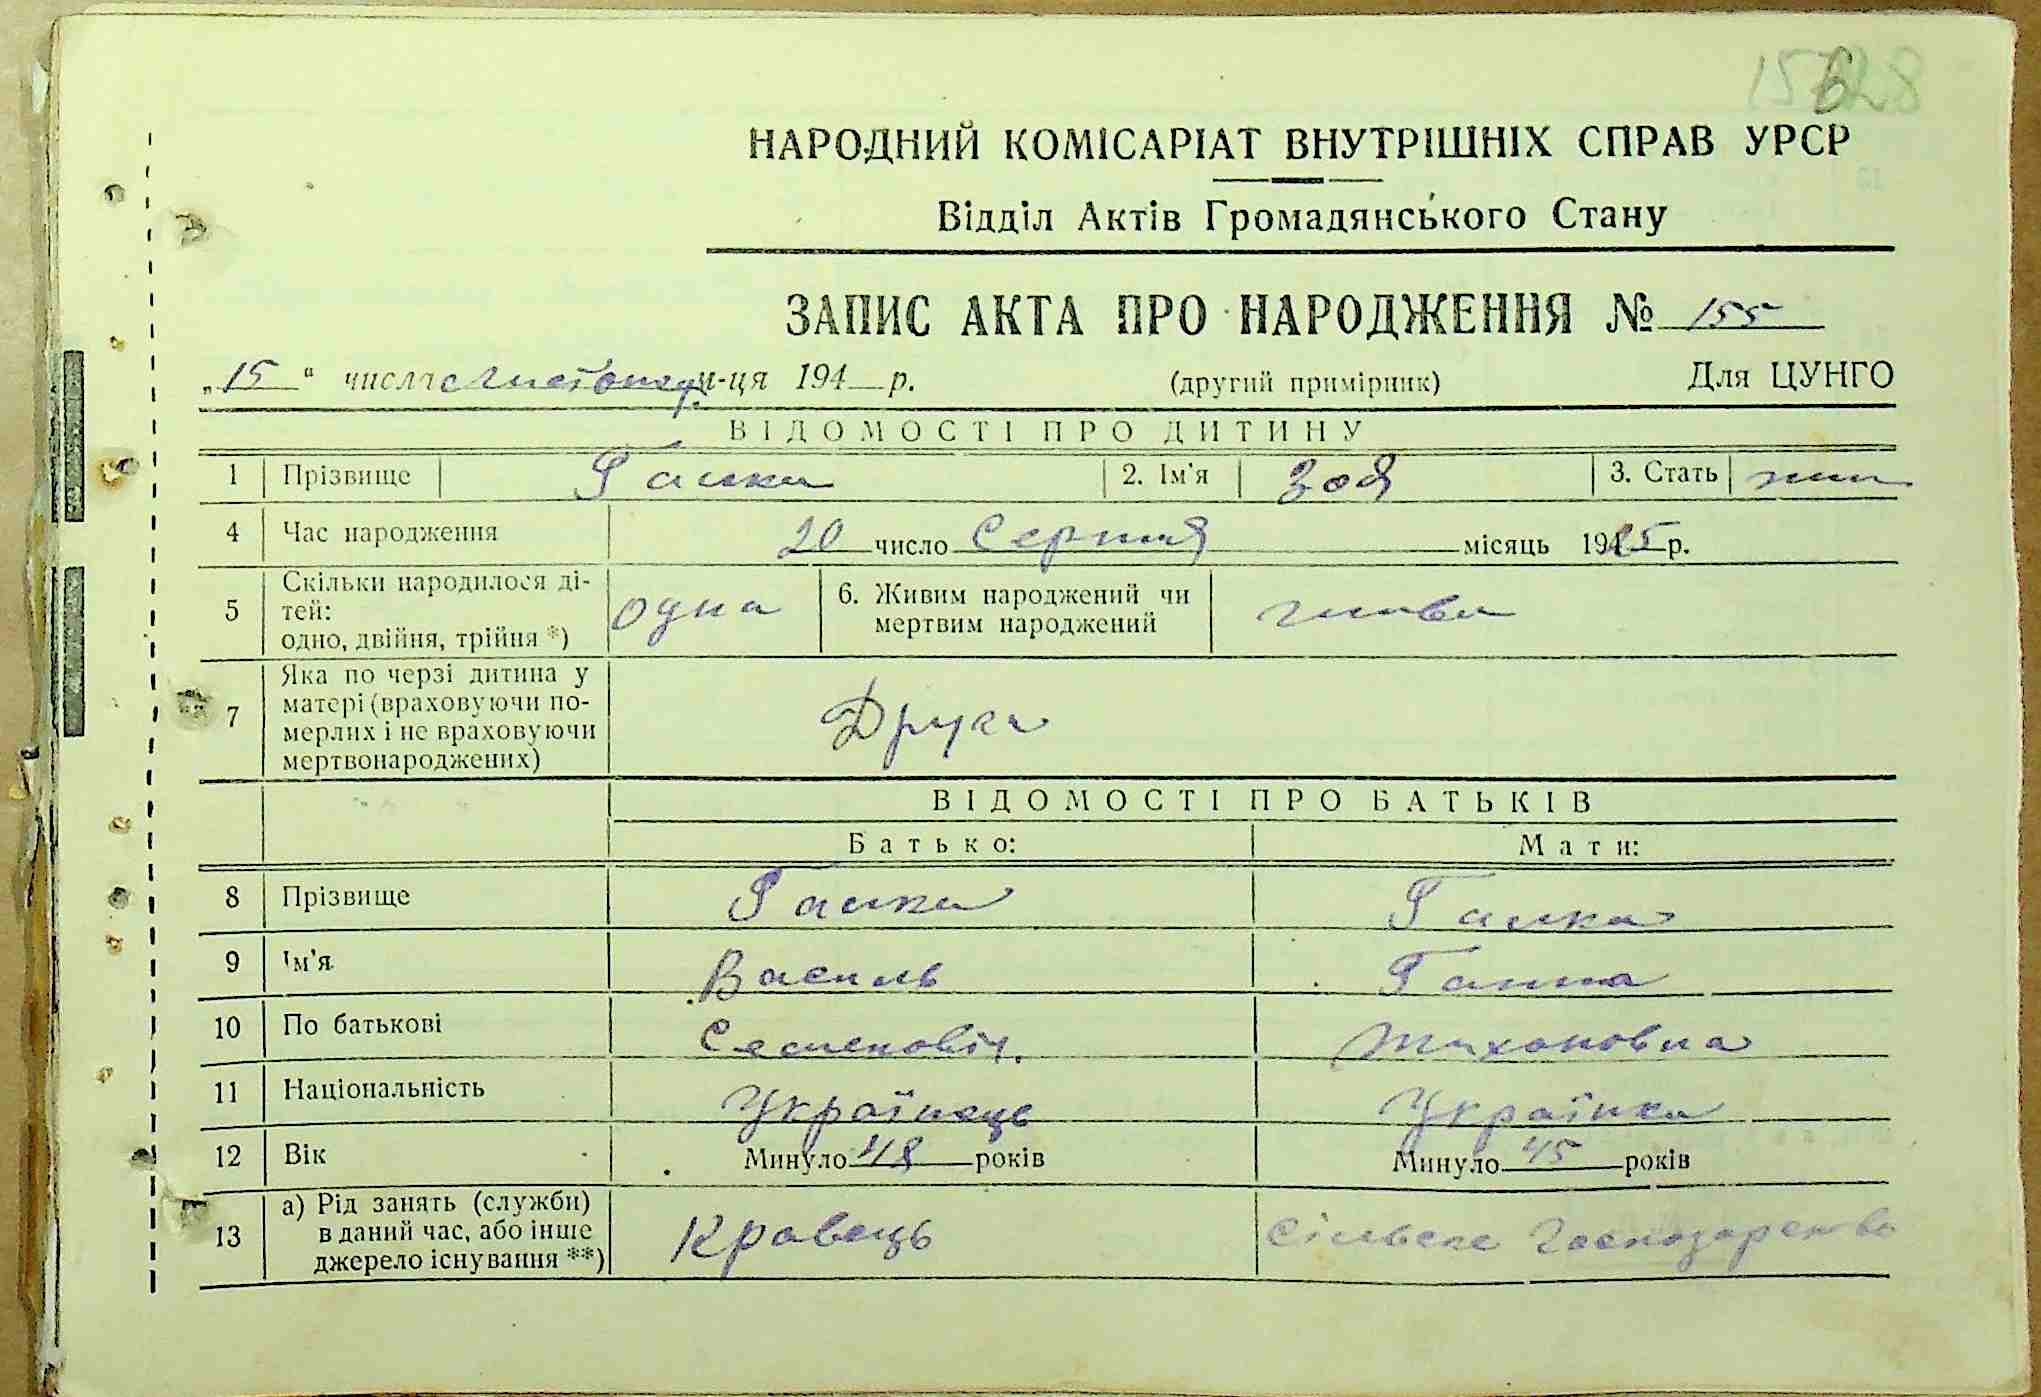 НАРОДНИЙ КОМІСАРІАТ ВНУТРІШНІХ СПРАВ УРСР
Відділ Актів Громадянського Стану
ЗАПИС АКТА ПРО НАРОДЖЕННЯ № 155
„15“ числа Листопад м-ця 194 р. (другий примірник) Для ЦУНГО
ВІДОМОСТІ ПРО ДИТИНУ
1 Прізвище Галка 2. Ім'я Зоя 3. Стать жін
4 Час народження 20 число Серпня місяць 1925 р.
5 Скільки народилося ді-
тей:
одно, двійня, трійня *) одна 6. Живим народжений чи
мертвим народжений жива
7 Яка по черзі дитина у
матері (враховуючи по-
мерлих і не враховуючи
мертвонароджених) Друга
ВІДОМОСТІ ПРО БАТЬКІВ
Батько: Мати:
8 Прізвище Галка Галка
9 Ім'я Василь Ганна
10 По батькові Семенович. Тихоновна
11 Національність Українець Українка
12 Вік Минуло 48 років Минуло 45 років
13 а) Рід занять (служби)
в даний час, або інше
джерело існування **) Кравець Сільське Господарство